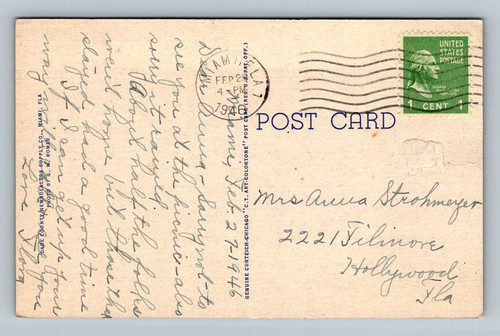 MIAMI, FLA.
FEB 27
4 PM
1946
UNITED STATES
POSTAGE
1 CENT 1
POST CARD
Miami, Feb. 27-1946
Dear Anna - Sorry not to
see you at the picnic - also
sorry it rained.
About half the folks
went home but those that
stayed had a good time
If I can get up your
way will see you
Love Flora
Mrs Anna Strohmeyer
2221 Filmore
Hollywood
Fla
GENUINE CURTEICH-CHICAGO "C.T. ART-COLORTONE" POST CARD (REG. U.S. PAT. OFF.)
DADE COUNTY NEWSDEALERS SUPPLY CO., MIAMI, FLA.
PHOTO BY G. W. ROMER